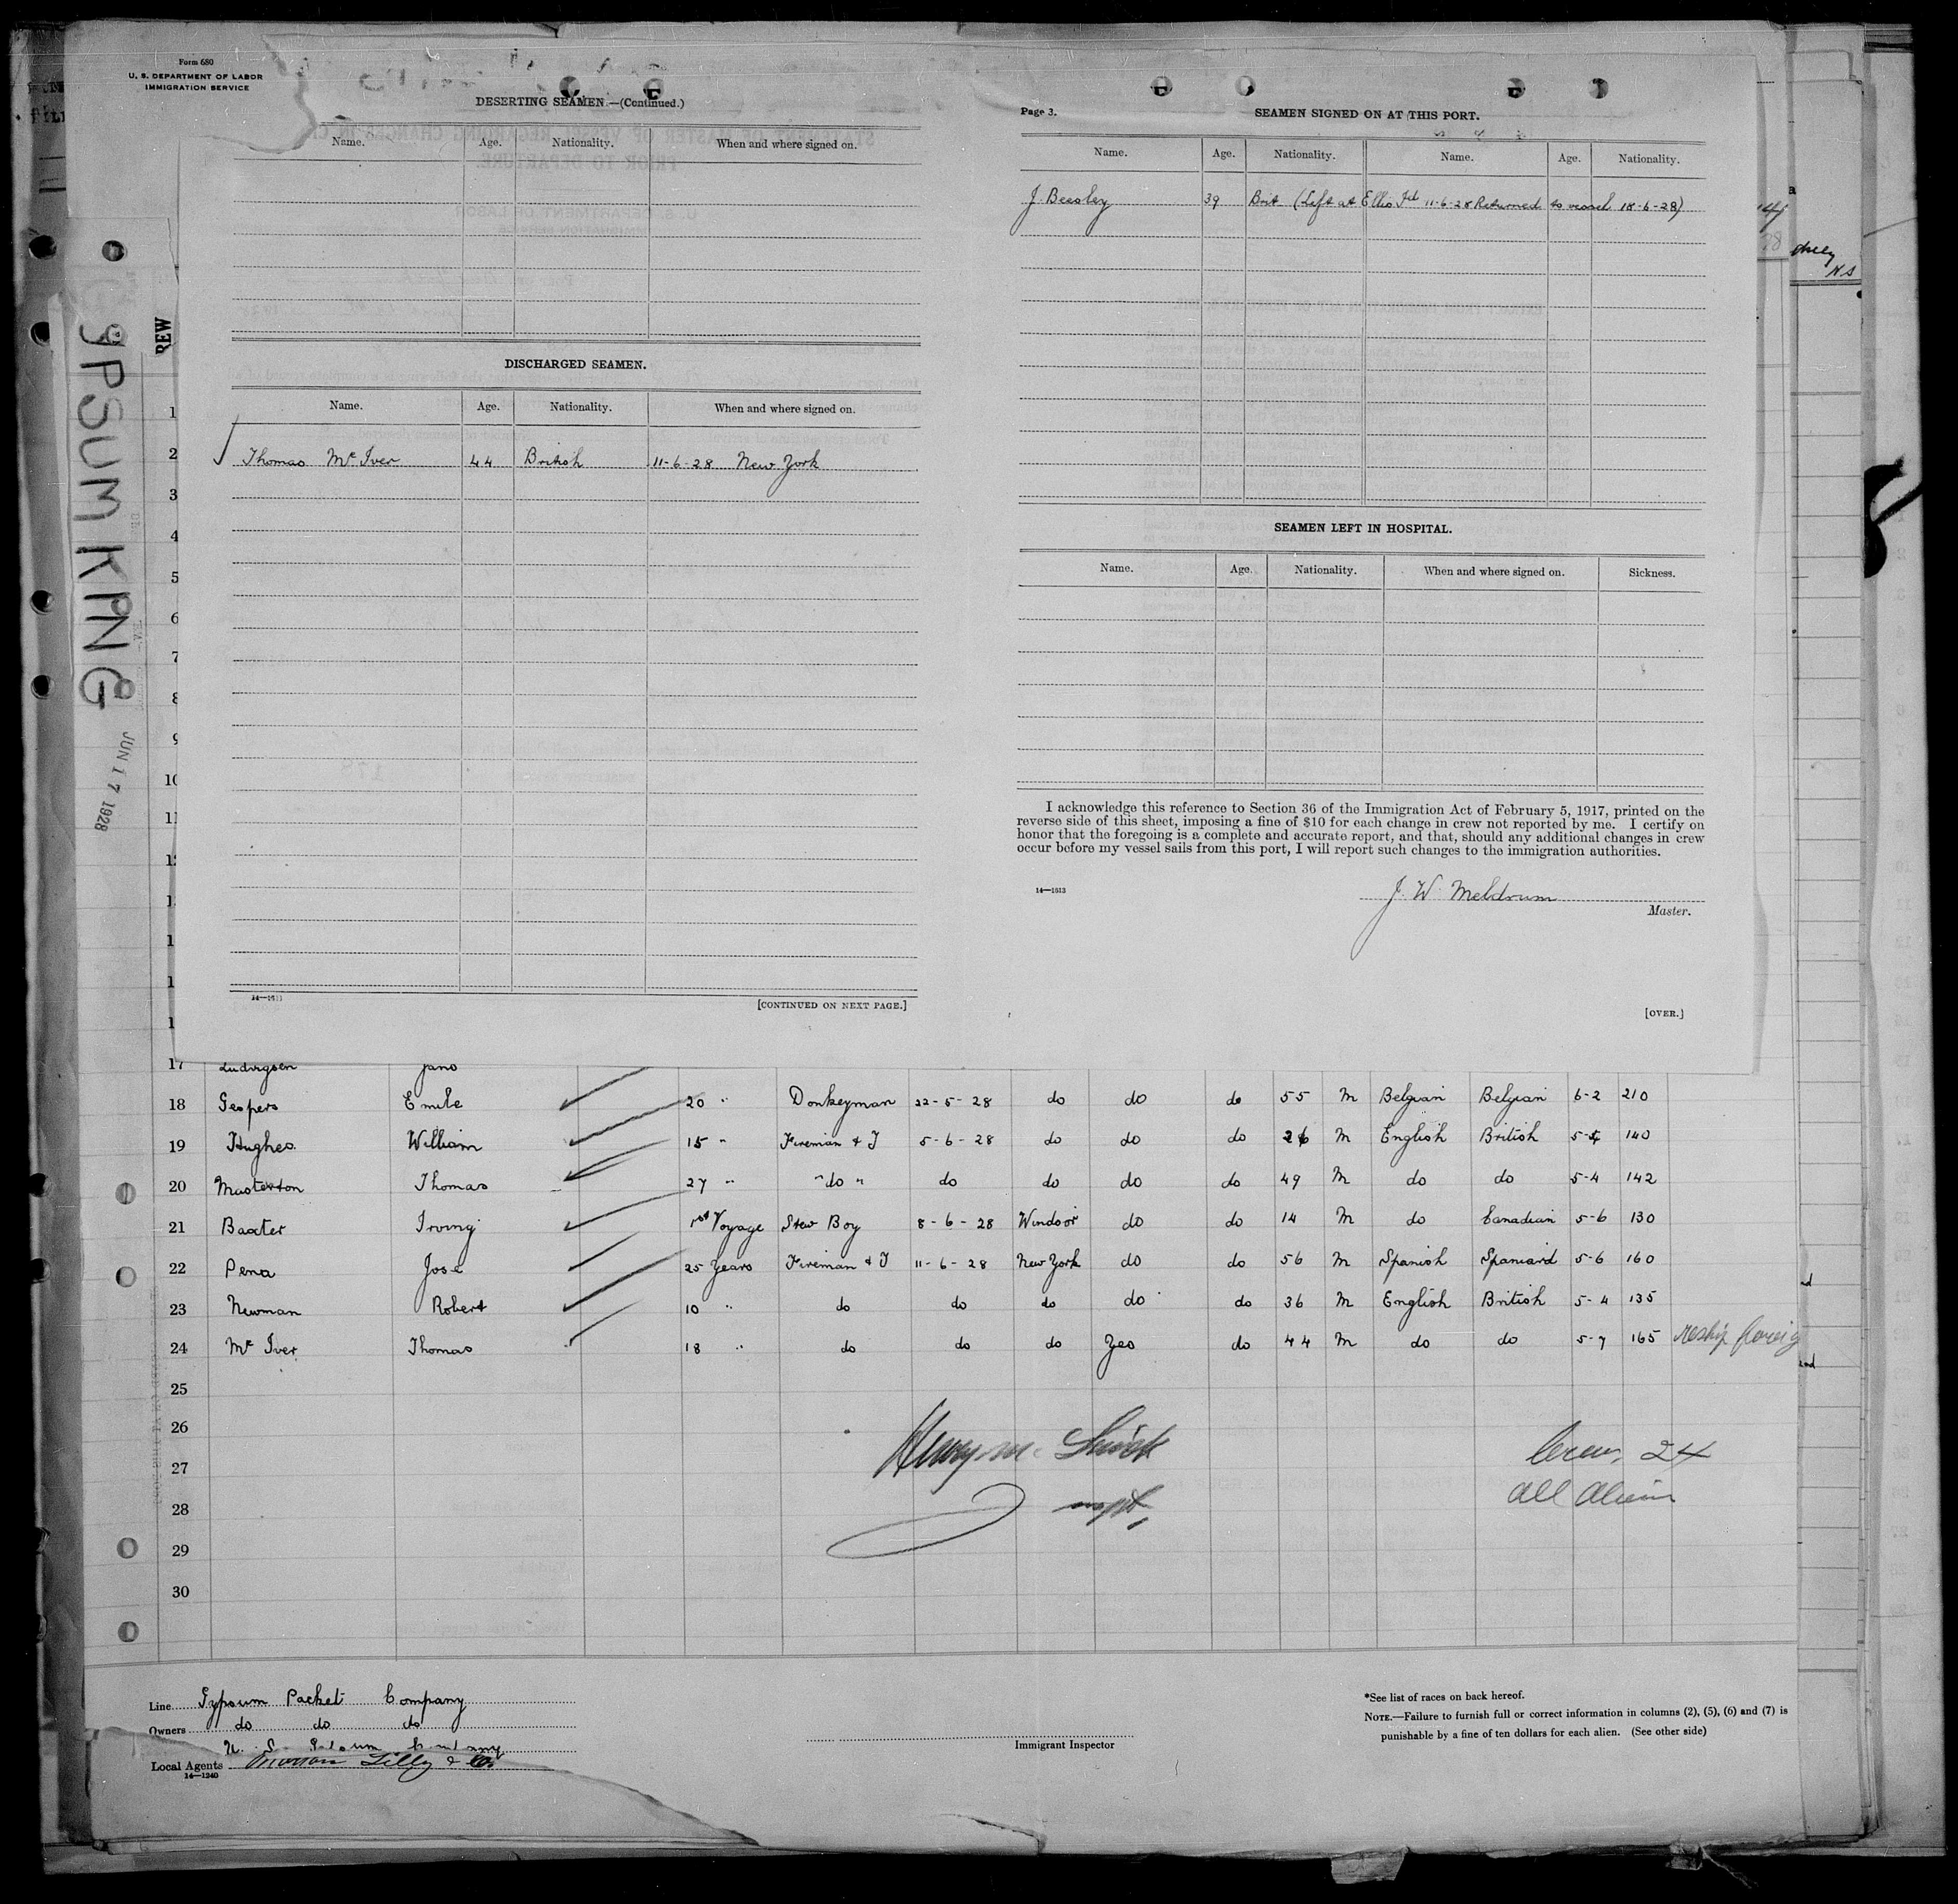 Form 680
U. S. DEPARTMENT OF LABOR
IMMIGRATION SERVICE
DESERTING SEAMEN.—(Continued.)
Name. Age. Nationality. When and where signed on.
DISCHARGED SEAMEN.
Name. Age. Nationality. When and where signed on.
Thomas Mc Iver 44 British 11-6-28 New York
14—1611
[CONTINUED ON NEXT PAGE.]
Page 3.
SEAMEN SIGNED ON AT THIS PORT.
Name. Age. Nationality. Name. Age. Nationality.
J. Beesley 39 Brit (Left at Ellis Isd 11-6-28 Returned to vessel 18-6-28)
SEAMEN LEFT IN HOSPITAL.
Name. Age. Nationality. When and where signed on. Sickness.
I acknowledge this reference to Section 36 of the Immigration Act of February 5, 1917, printed on the
reverse side of this sheet, imposing a fine of $10 for each change in crew not reported by me. I certify on
honor that the foregoing is a complete and accurate report, and that, should any additional changes in crew
occur before my vessel sails from this port, I will report such changes to the immigration authorities.
14—1613
J. W. Meldrum
Master.
[OVER.]
GYPSUM KING
JUN 17 1928
REW
1
2
3
4
5
6
7
8
9
10
11
17 Ludvigsen
18 Gespers Emile 20 " Donkeyman 22-5-28 do do do 55 M Belgian Belgian 6-2 210
19 Hughes. William 15 " Fireman & T 5-6-28 do do do 26 M English British 5-5 140
20 Masterton Thomas 27 " " do " do do do do 49 M do do 5-4 142
21 Baxter Irving 1st Voyage Stew Boy 8-6-28 Windsor do do 14 M do Canadian 5-6 130
22 Pena Jose 25 Years Fireman & T 11-6-28 New York do do 56 M Spanish Spaniard 5-6 160
23 Newman Robert 10 " do do do do do 36 M English British 5-4 135
24 Mc Iver Thomas 18 " do do do Yes do 44 M do do 5-7 165 reship foreig
25
26
27
28
29
30
Crew, 24
All Aliens
Line Gypsum Packet Company
Owners do do do
Local Agents
14—1240
Immigrant Inspector
*See list of races on back hereof.
NOTE.—Failure to furnish full or correct information in columns (2), (5), (6) and (7) is
punishable by a fine of ten dollars for each alien. (See other side)